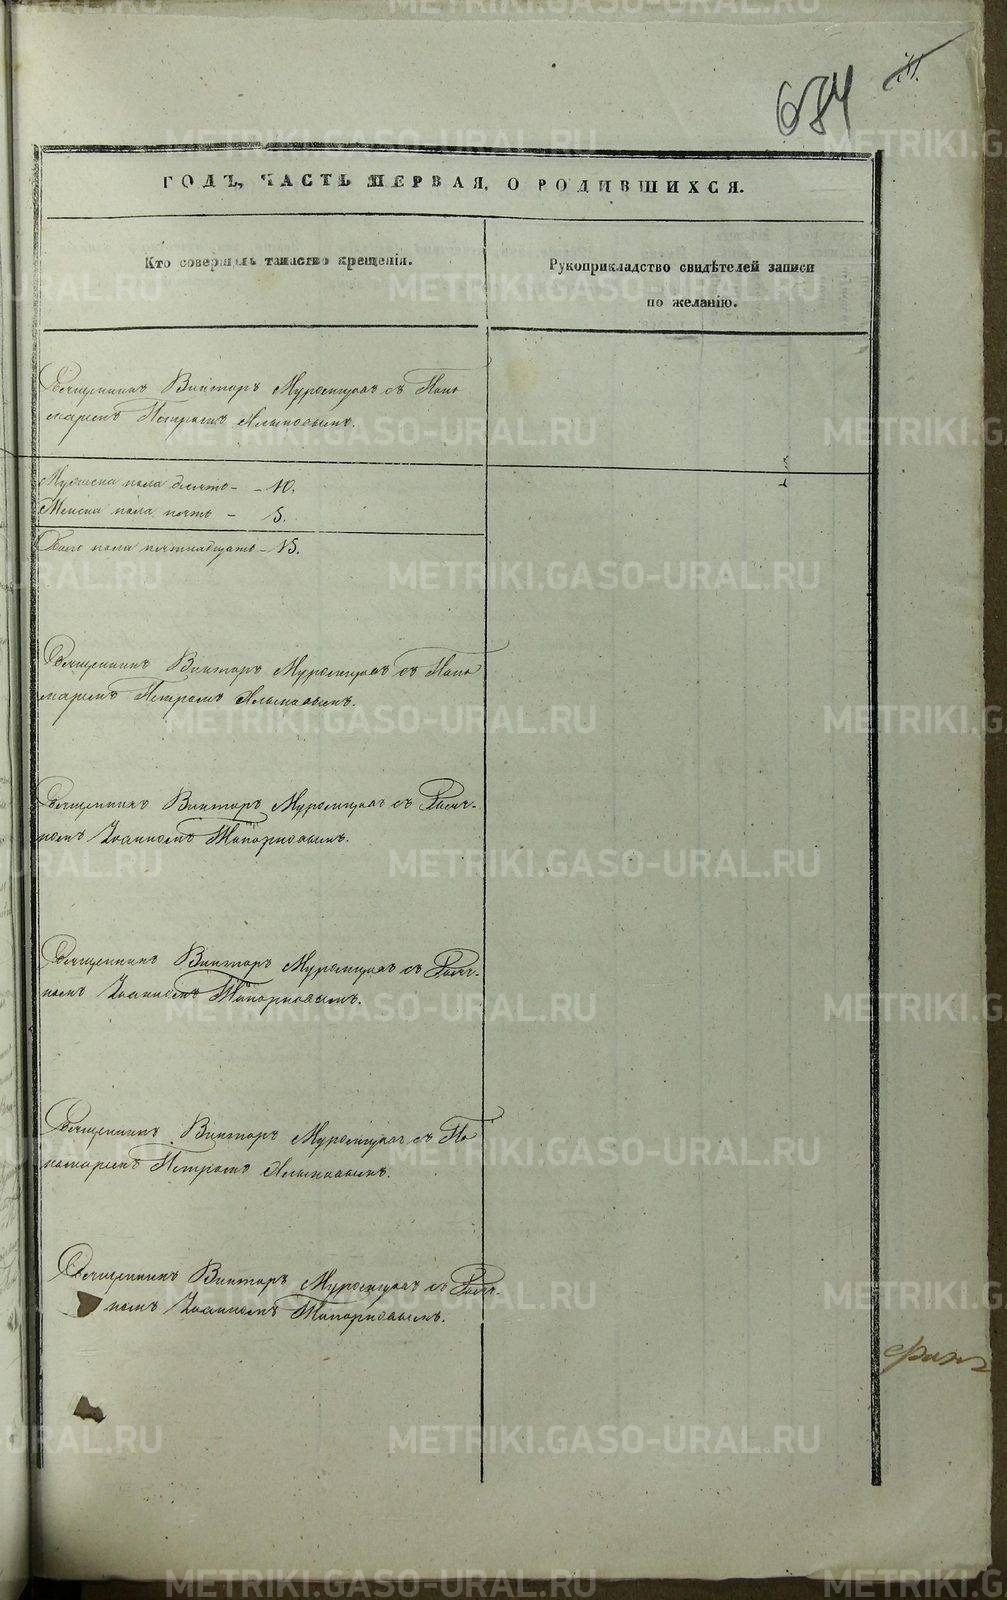 684
ГОДЪ, ЧАСТЬ ПЕРВАЯ, О РОДИВШИХСЯ.
Кто совершалъ таинство крещенія.
Рукоприкладство свидѣтелей записи
по желанію.
Священникъ Викторъ Муромцовъ съ Поно
маремъ Петромъ
Мужеска пола десять - 10.
Женска пола пять - 5.
Обоего пола пятнадцать - 15.
Священникъ Викторъ Муромцовъ съ Поно
маремъ Петромъ
Священникъ Викторъ Муромцовъ съ Дьяч-
комъ Іоанномъ Топорковымъ.
Священникъ Викторъ Муромцовъ съ Дьяч-
комъ Іоанномъ Топорковымъ.
Священникъ Викторъ Муромцовъ съ По
номаремъ Петромъ
Священникъ Викторъ Муромцовъ съ Дьяч-
комъ Іоанномъ Топорковымъ.
METRIKI.GASO-URAL.RU